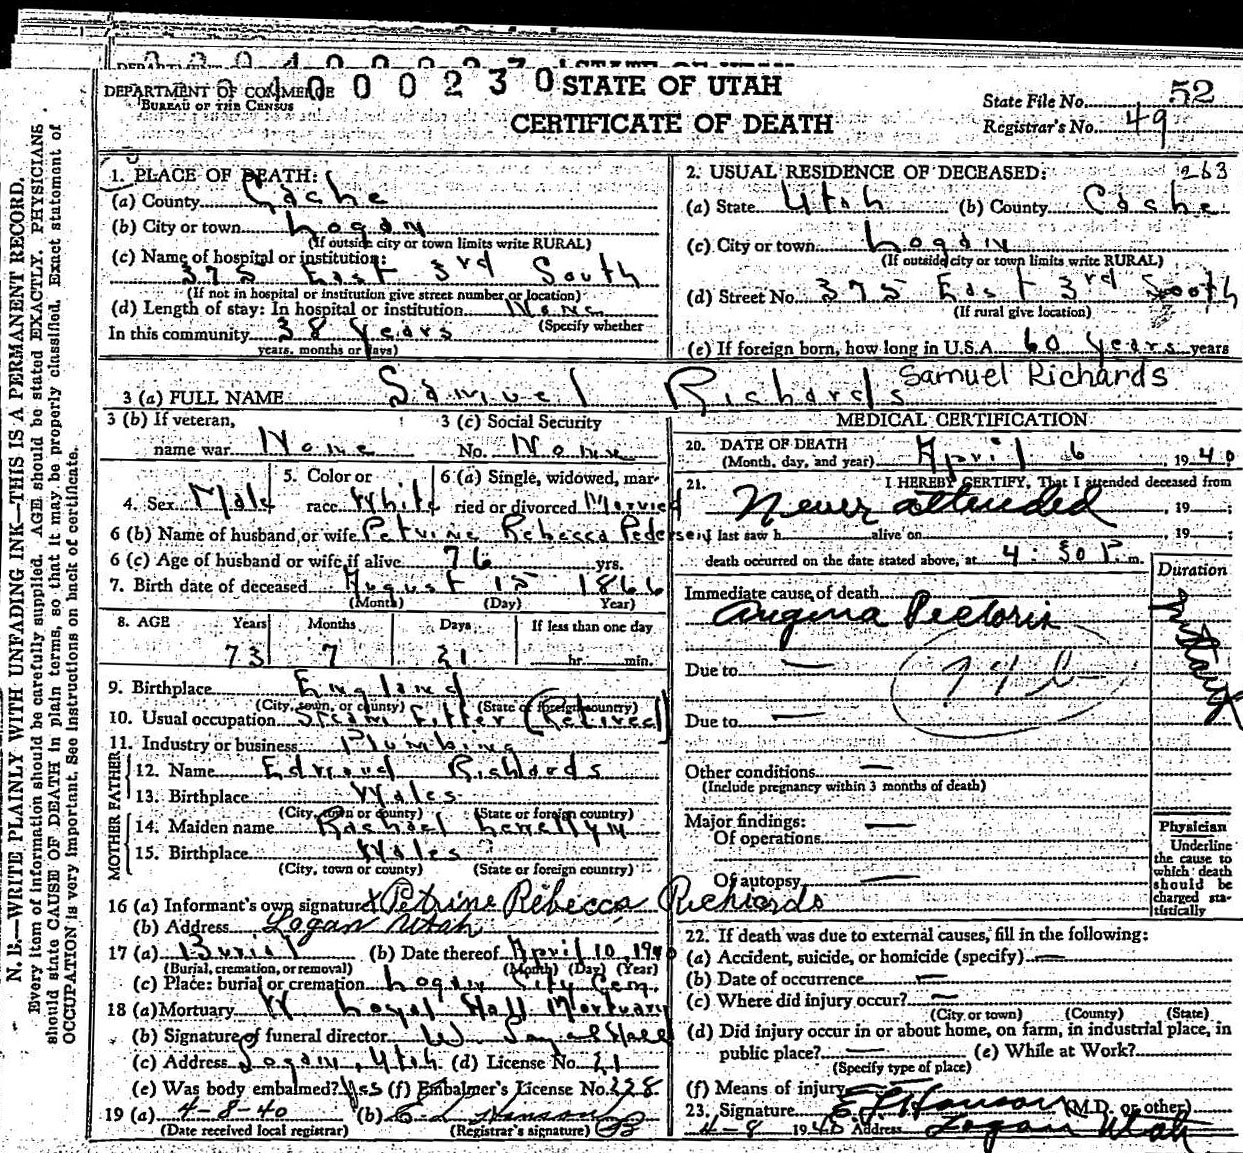 0400230 STATE OF UTAH
DEPARTMENT OF COMMERCE
BUREAU OF THE CENSUS
CERTIFICATE OF DEATH
State File No. 52
Registrar's No. 49
N. B.—WRITE PLAINLY WITH UNFADING INK—THIS IS A PERMANENT RECORD.
Every item of information should be carefully supplied. AGE should be stated EXACTLY. PHYSICIANS
should state CAUSE OF DEATH in plain terms, so that it may be properly classified. Exact statement of
OCCUPATION is very important. See instructions on back of certificate.
1. PLACE OF DEATH:
(a) County Cache
(b) City or town Logan
(If outside city or town limits write RURAL)
(c) Name of hospital or institution:
375 East 3rd South
(If not in hospital or institution give street number or location)
(d) Length of stay: In hospital or institution None
(Specify whether
In this community 38 years
years, months or days)
2. USUAL RESIDENCE OF DECEASED: 263
(a) State Utah (b) County Cache
(c) City or town Logan
(If outside city or town limits write RURAL)
(d) Street No. 375 East 3rd South
(If rural give location)
(e) If foreign born, how long in U.S.A. 60 years years
3 (a) FULL NAME Samuel Richards Samuel Richards
3 (b) If veteran,
name war None
3 (c) Social Security
No. None
4. Sex Male
5. Color or
race White
6 (a) Single, widowed, mar-
ried or divorced Married
6 (b) Name of husband or wife Petrine Rebecca Pedersen
6 (c) Age of husband or wife if alive 76 yrs.
7. Birth date of deceased August 15 1866
(Month) (Day) Year)
8. AGE Years Months Days If less than one day
73 7 21 hr. min.
9. Birthplace England
(City, town, or county) (State or foreign country)
10. Usual occupation Steam Fitter (Retired)
11. Industry or business Plumbing
FATHER
12. Name Edmond Richards
13. Birthplace Wales
(City, town or county) (State or foreign country)
MOTHER
14. Maiden name Rachael Lewellyn
15. Birthplace Wales
(City, town or county) (State or foreign country)
16 (a) Informant's own signature x Petrine Rebecca Richards
(b) Address Logan Utah
17 (a) Burial (b) Date thereof April 10, 1940
(Burial, cremation, or removal) (Month) (Day) (Year)
(c) Place: burial or cremation Logan City Cem.
18 (a) Mortuary W. Loyal Hall Mortuary
(b) Signature of funeral director W. Loyal Hall
(c) Address Logan, Utah (d) License No. 21
(e) Was body embalmed? Yes (f) Embalmer's License No. 228
19 (a) 4-8-40 (b) E L Hanson
(Date received local registrar) (Registrar's signature)
MEDICAL CERTIFICATION
20. DATE OF DEATH
(Month, day, and year) April 6, 1940
21. I HEREBY CERTIFY, That I attended deceased from
Never attended, 19
I last saw h alive on , 19 ;
death occurred on the date stated above, at 4:50 P. m.
Duration
Immediate cause of death
Angina Pectoris
Due to —
Due to —
Other conditions —
(Include pregnancy within 3 months of death)
Major findings:
Of operations —
Of autopsy —
Physician
Underline
the cause to
which death
should be
charged sta-
tistically
22. If death was due to external causes, fill in the following:
(a) Accident, suicide, or homicide (specify) —
(b) Date of occurrence —
(c) Where did injury occur? —
(City or town) (County) (State)
(d) Did injury occur in or about home, on farm, in industrial place, in
public place? — (e) While at Work?
(Specify type of place)
(f) Means of injury
23. Signature E L Hanson (M.D. or other)
4-8 1940 Address Logan Utah